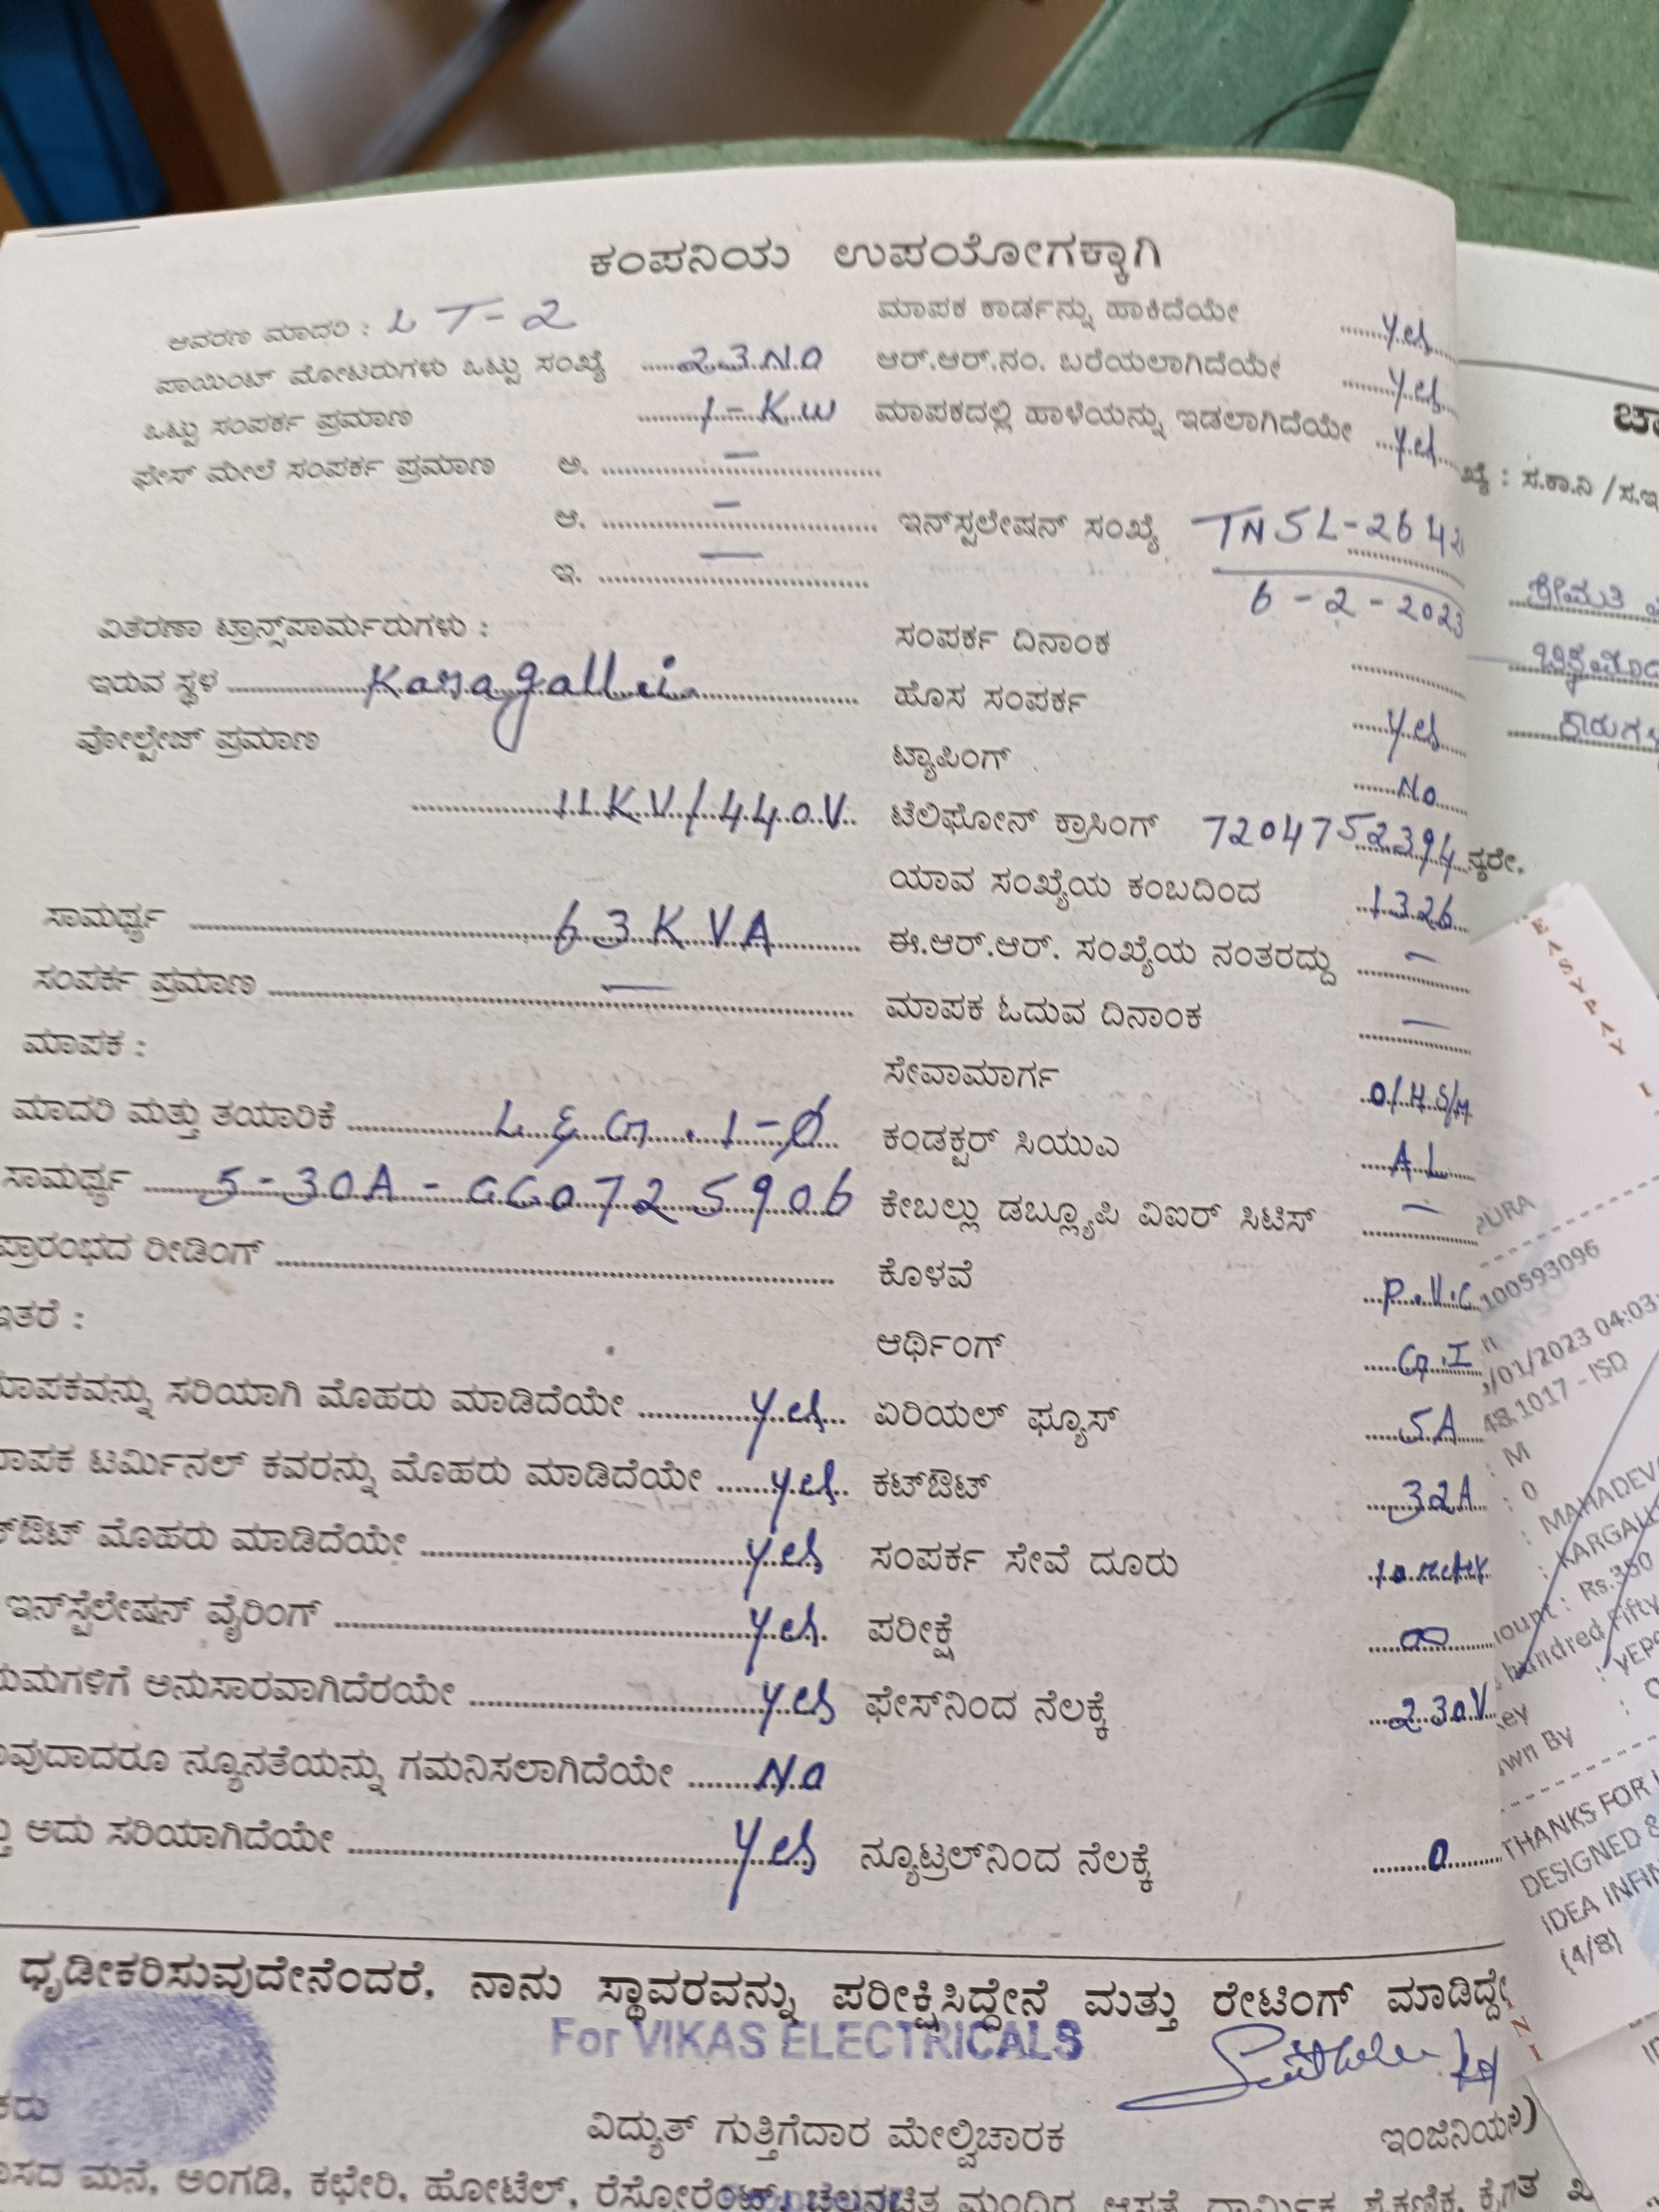 ಕಂಪನಿಯ ಉಪಯೋಗಕ್ಕಾಗಿ
ಆವರಣ ಮಾದರಿ : LT-2
ಪಾಯಿಂಟ್ ಮೋಟರುಗಳು ಒಟ್ಟು ಸಂಖ್ಯೆ 23 NO
ಒಟ್ಟು ಸಂಪರ್ಕ ಪ್ರಮಾಣ 1-KW
ಫೇಸ್ ಮೇಲೆ ಸಂಪರ್ಕ ಪ್ರಮಾಣ ಅ. —
ಆ. —
ಇ. —
ವಿತರಣಾ ಟ್ರಾನ್ಸ್‌ಪಾರ್ಮರುಗಳು :
ಇರುವ ಸ್ಥಳ Karagalli
ವೋಲ್ಟೇಜ್ ಪ್ರಮಾಣ
11KV/440V
ಸಾಮರ್ಥ್ಯ 63KVA
ಸಂಪರ್ಕ ಪ್ರಮಾಣ —
ಮಾಪಕ :
ಮಾದರಿ ಮತ್ತು ತಯಾರಿಕೆ L&G. 1-Ø
ಸಾಮರ್ಥ್ಯ 5-30A - GG0725906
ಪ್ರಾರಂಭದ ರೀಡಿಂಗ್
ಇತರೆ :
ಮಾಪಕವನ್ನು ಸರಿಯಾಗಿ ಮೊಹರು ಮಾಡಿದೆಯೇ Yes
ಮಾಪಕ ಟರ್ಮಿನಲ್ ಕವರನ್ನು ಮೊಹರು ಮಾಡಿದೆಯೇ Yes
ಮೊಹರು ಮಾಡಿದೆಯೇ Yes
ಇನ್‌ಸ್ಟಲೇಷನ್ ವೈರಿಂಗ್ Yes.
ಅನುಸಾರವಾಗಿದೆರಯೇ Yes
ನ್ಯೂನತೆಯನ್ನು ಗಮನಿಸಲಾಗಿದೆಯೇ No
ಅದು ಸರಿಯಾಗಿದೆಯೇ Yes
ಮಾಪಕ ಕಾರ್ಡನ್ನು ಹಾಕಿದೆಯೇ Yes
ಆರ್.ಆರ್.ನಂ. ಬರೆಯಲಾಗಿದೆಯೇ Yes
ಮಾಪಕದಲ್ಲಿ ಹಾಳೆಯನ್ನು ಇಡಲಾಗಿದೆಯೇ Yes
ಇನ್‌ಸ್ಟಲೇಷನ್ ಸಂಖ್ಯೆ TNSL-2642
6-2-2023
ಸಂಪರ್ಕ ದಿನಾಂಕ
ಹೊಸ ಸಂಪರ್ಕ Yes
ಟ್ಯಾಪಿಂಗ್ No
ಟೆಲಿಫೋನ್ ಕ್ರಾಸಿಂಗ್ 7204752394
ಯಾವ ಸಂಖ್ಯೆಯ ಕಂಬದಿಂದ 1326
ಈ.ಆರ್.ಆರ್. ಸಂಖ್ಯೆಯ ನಂತರದ್ದು —
ಮಾಪಕ ಓದುವ ದಿನಾಂಕ —
ಸೇವಾಮಾರ್ಗ O/H S/M
ಕಂಡಕ್ಟರ್ ಸಿಯುಎ AL
ಕೇಬಲ್ಲು ಡಬ್ಲ್ಯೂಪಿ ವಿಐರ್ ಸಿಟಿಸ್ —
ಕೊಳವೆ P.V.C
ಆರ್ಥಿಂಗ್ G.I
ಏರಿಯಲ್ ಫ್ಯೂಸ್ 5A
ಕಟ್‌ಔಟ್ 32A
ಸಂಪರ್ಕ ಸೇವೆ ದೂರು 10 meter
ಪರೀಕ್ಷೆ ∞
ಫೇಸ್‌ನಿಂದ ನೆಲಕ್ಕೆ 230V
ನ್ಯೂಟ್ರಲ್‌ನಿಂದ ನೆಲಕ್ಕೆ 0
ಧೃಡೀಕರಿಸುವುದೇನೆಂದರೆ, ನಾನು ಸ್ಥಾವರವನ್ನು ಪರೀಕ್ಷಿಸಿದ್ದೇನೆ ಮತ್ತು ರೇಟಿಂಗ್ ಮಾಡಿದ್ದೇ
For VIKAS ELECTRICALS
ವಿದ್ಯುತ್ ಗುತ್ತಿಗೆದಾರ ಮೇಲ್ವಿಚಾರಕ
ಮನೆ, ಅಂಗಡಿ, ಕಛೇರಿ, ಹೋಟೆಲ್,
ಸ.ಕಾ.ನಿ /ಸ.ಇ
ಶ್ರೀಮತಿ
EASYPAY
PURA
100593096
/01/2023 04:03
48.1017 - ISD
: M
: 0
: MAHADEV
: KARGALL
ount : Rs.350
hundred Fifty
: YEP
wn By
THANKS FOR
DESIGNED &
IDEA INFIN
(4/8)